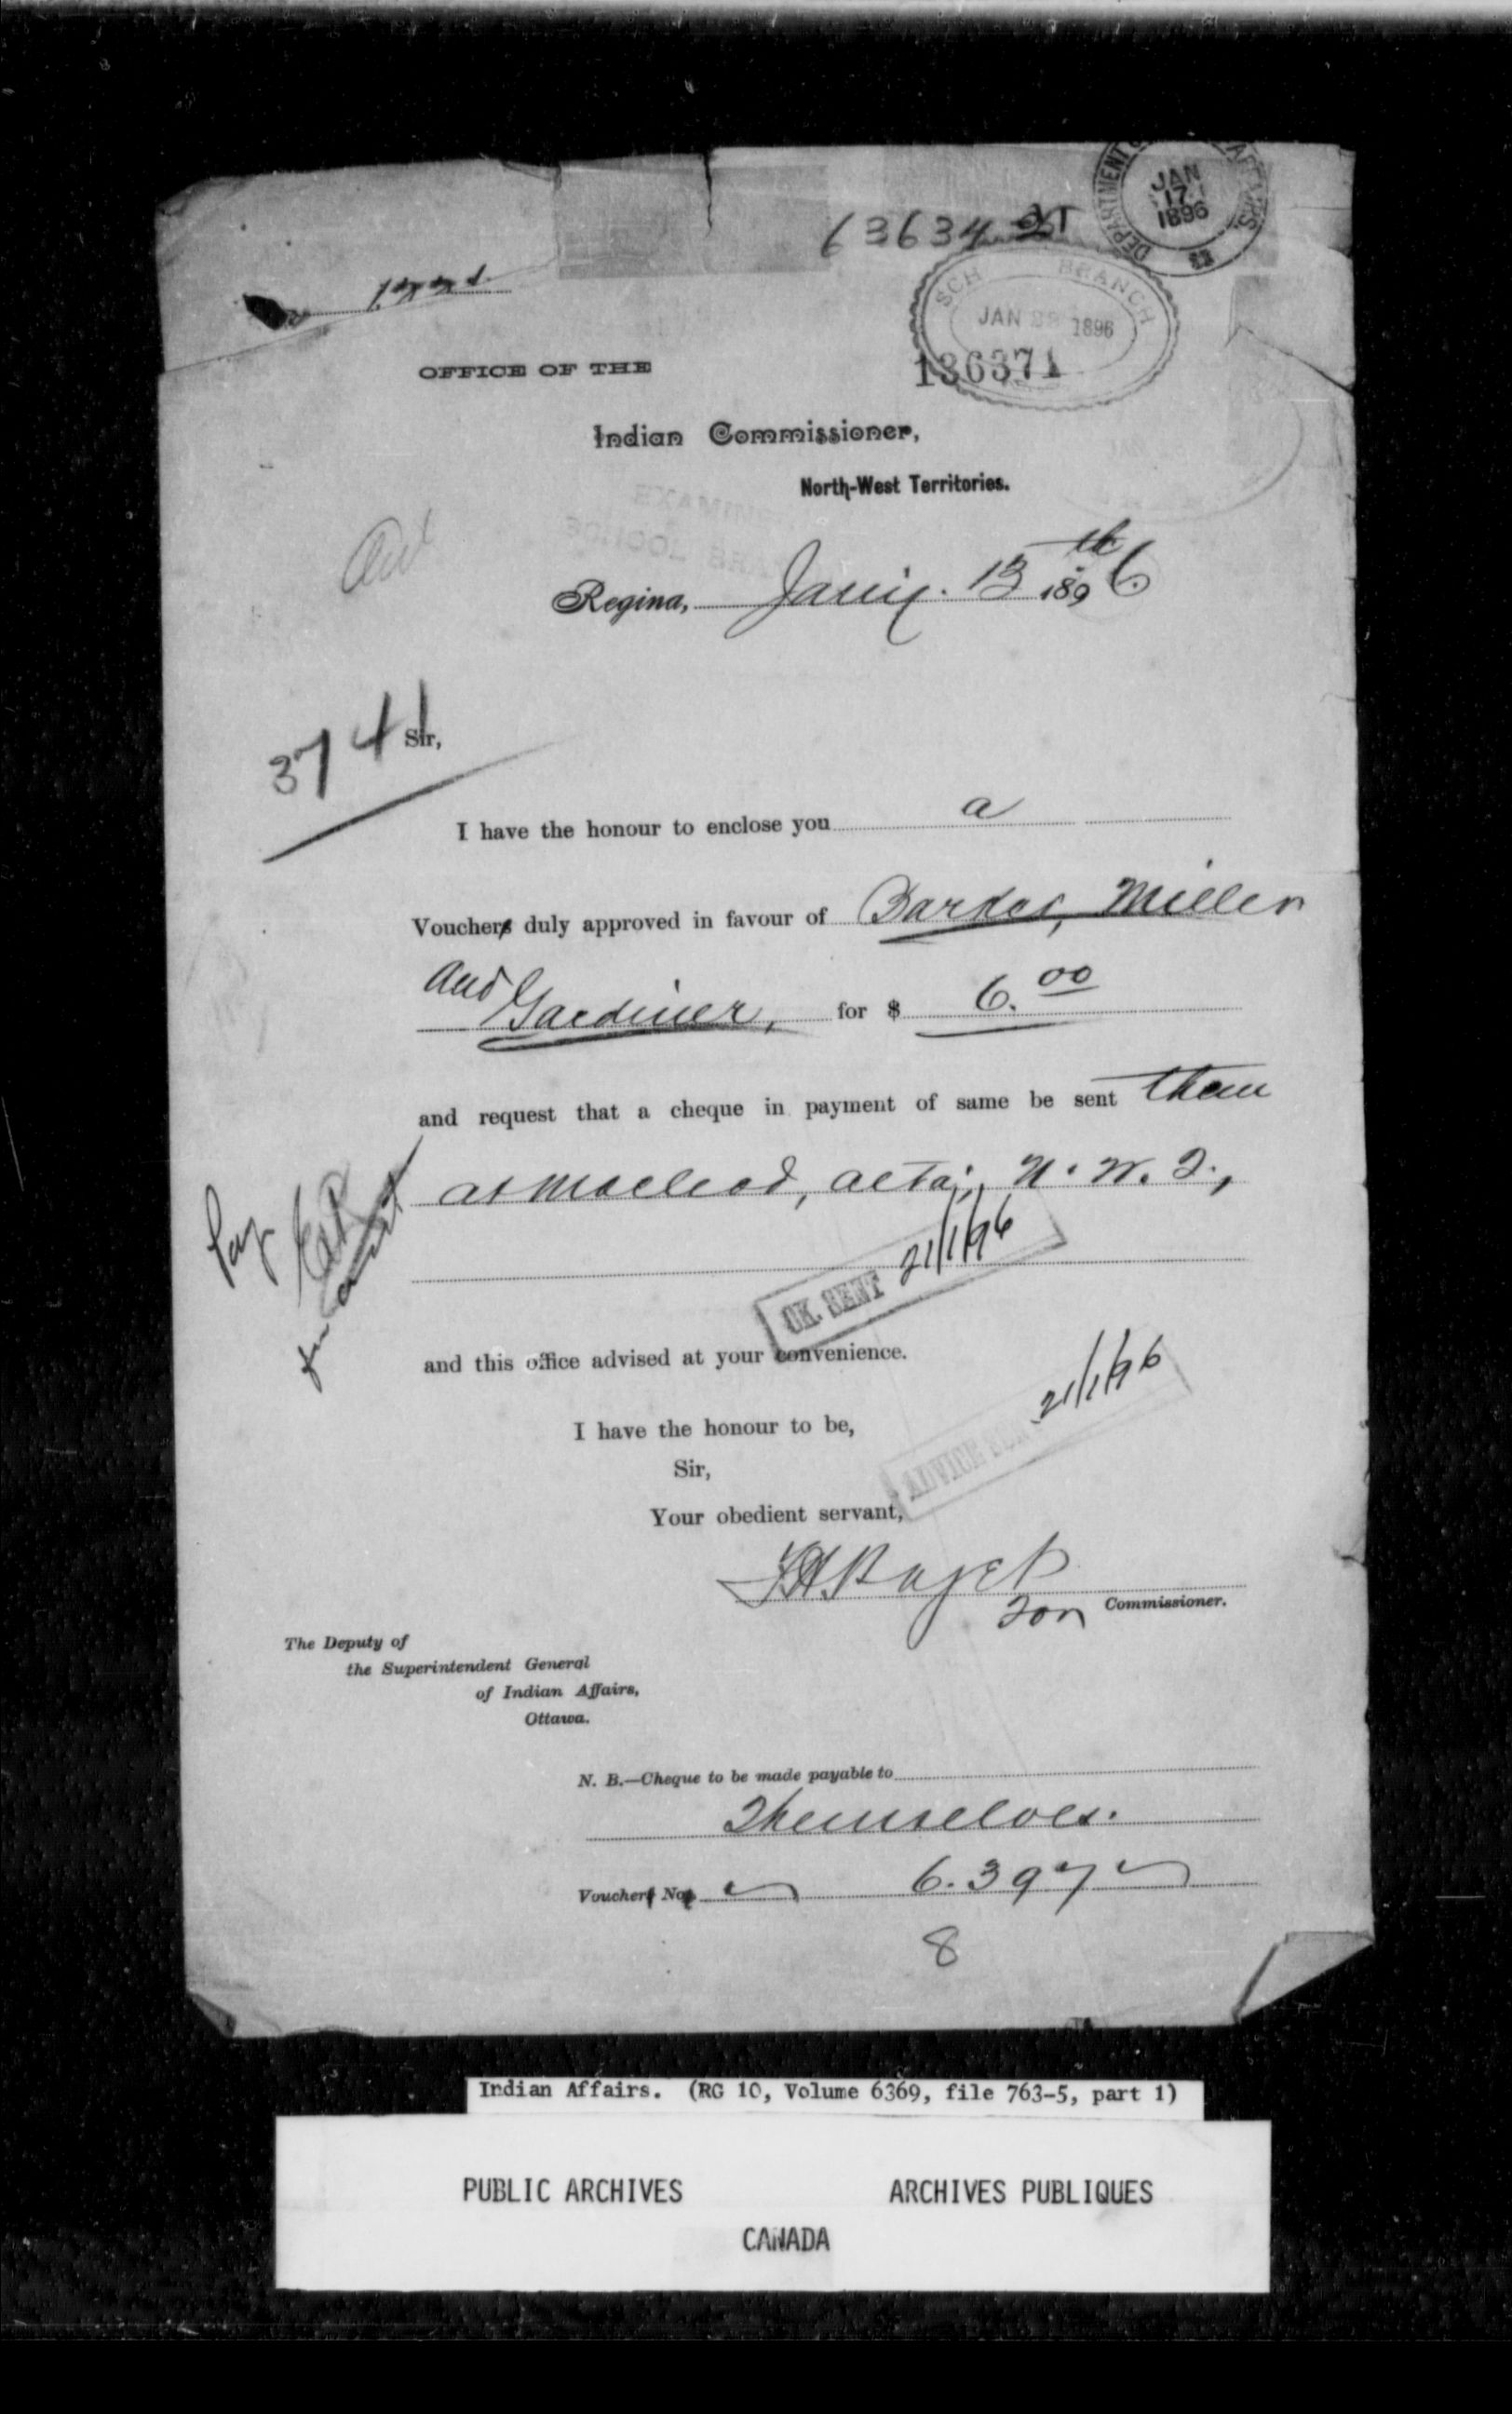 63634
DEPARTMENT AFFAIRS
JAN
17
1896
SCH BRANCH
JAN 1896
136371
OFFICE OF THE
Indian Commissioner,
North-West Territories.
Regina, Jany. 13th 1896.
3741
Sir,
I have the honour to enclose you a
Voucher duly approved in favour of Barker, Miller
and Gardiner, for $ 6.00
and request that a cheque in payment of same be sent them
at Macleod, Alta., N. W. T.,
Pay
CK. SENT 21/1/96
and this office advised at your convenience.
21/1/96
ADVICE
I have the honour to be,
Sir,
Your obedient servant,
Paget
For Commissioner.
The Deputy of
the Superintendent General
of Indian Affairs,
Ottawa.
N. B.—Cheque to be made payable to
Themselves.
Voucher No. 6.397
8
Indian Affairs. (RG 10, Volume 6369, file 763-5, part 1)
PUBLIC ARCHIVES ARCHIVES PUBLIQUES
CANADA